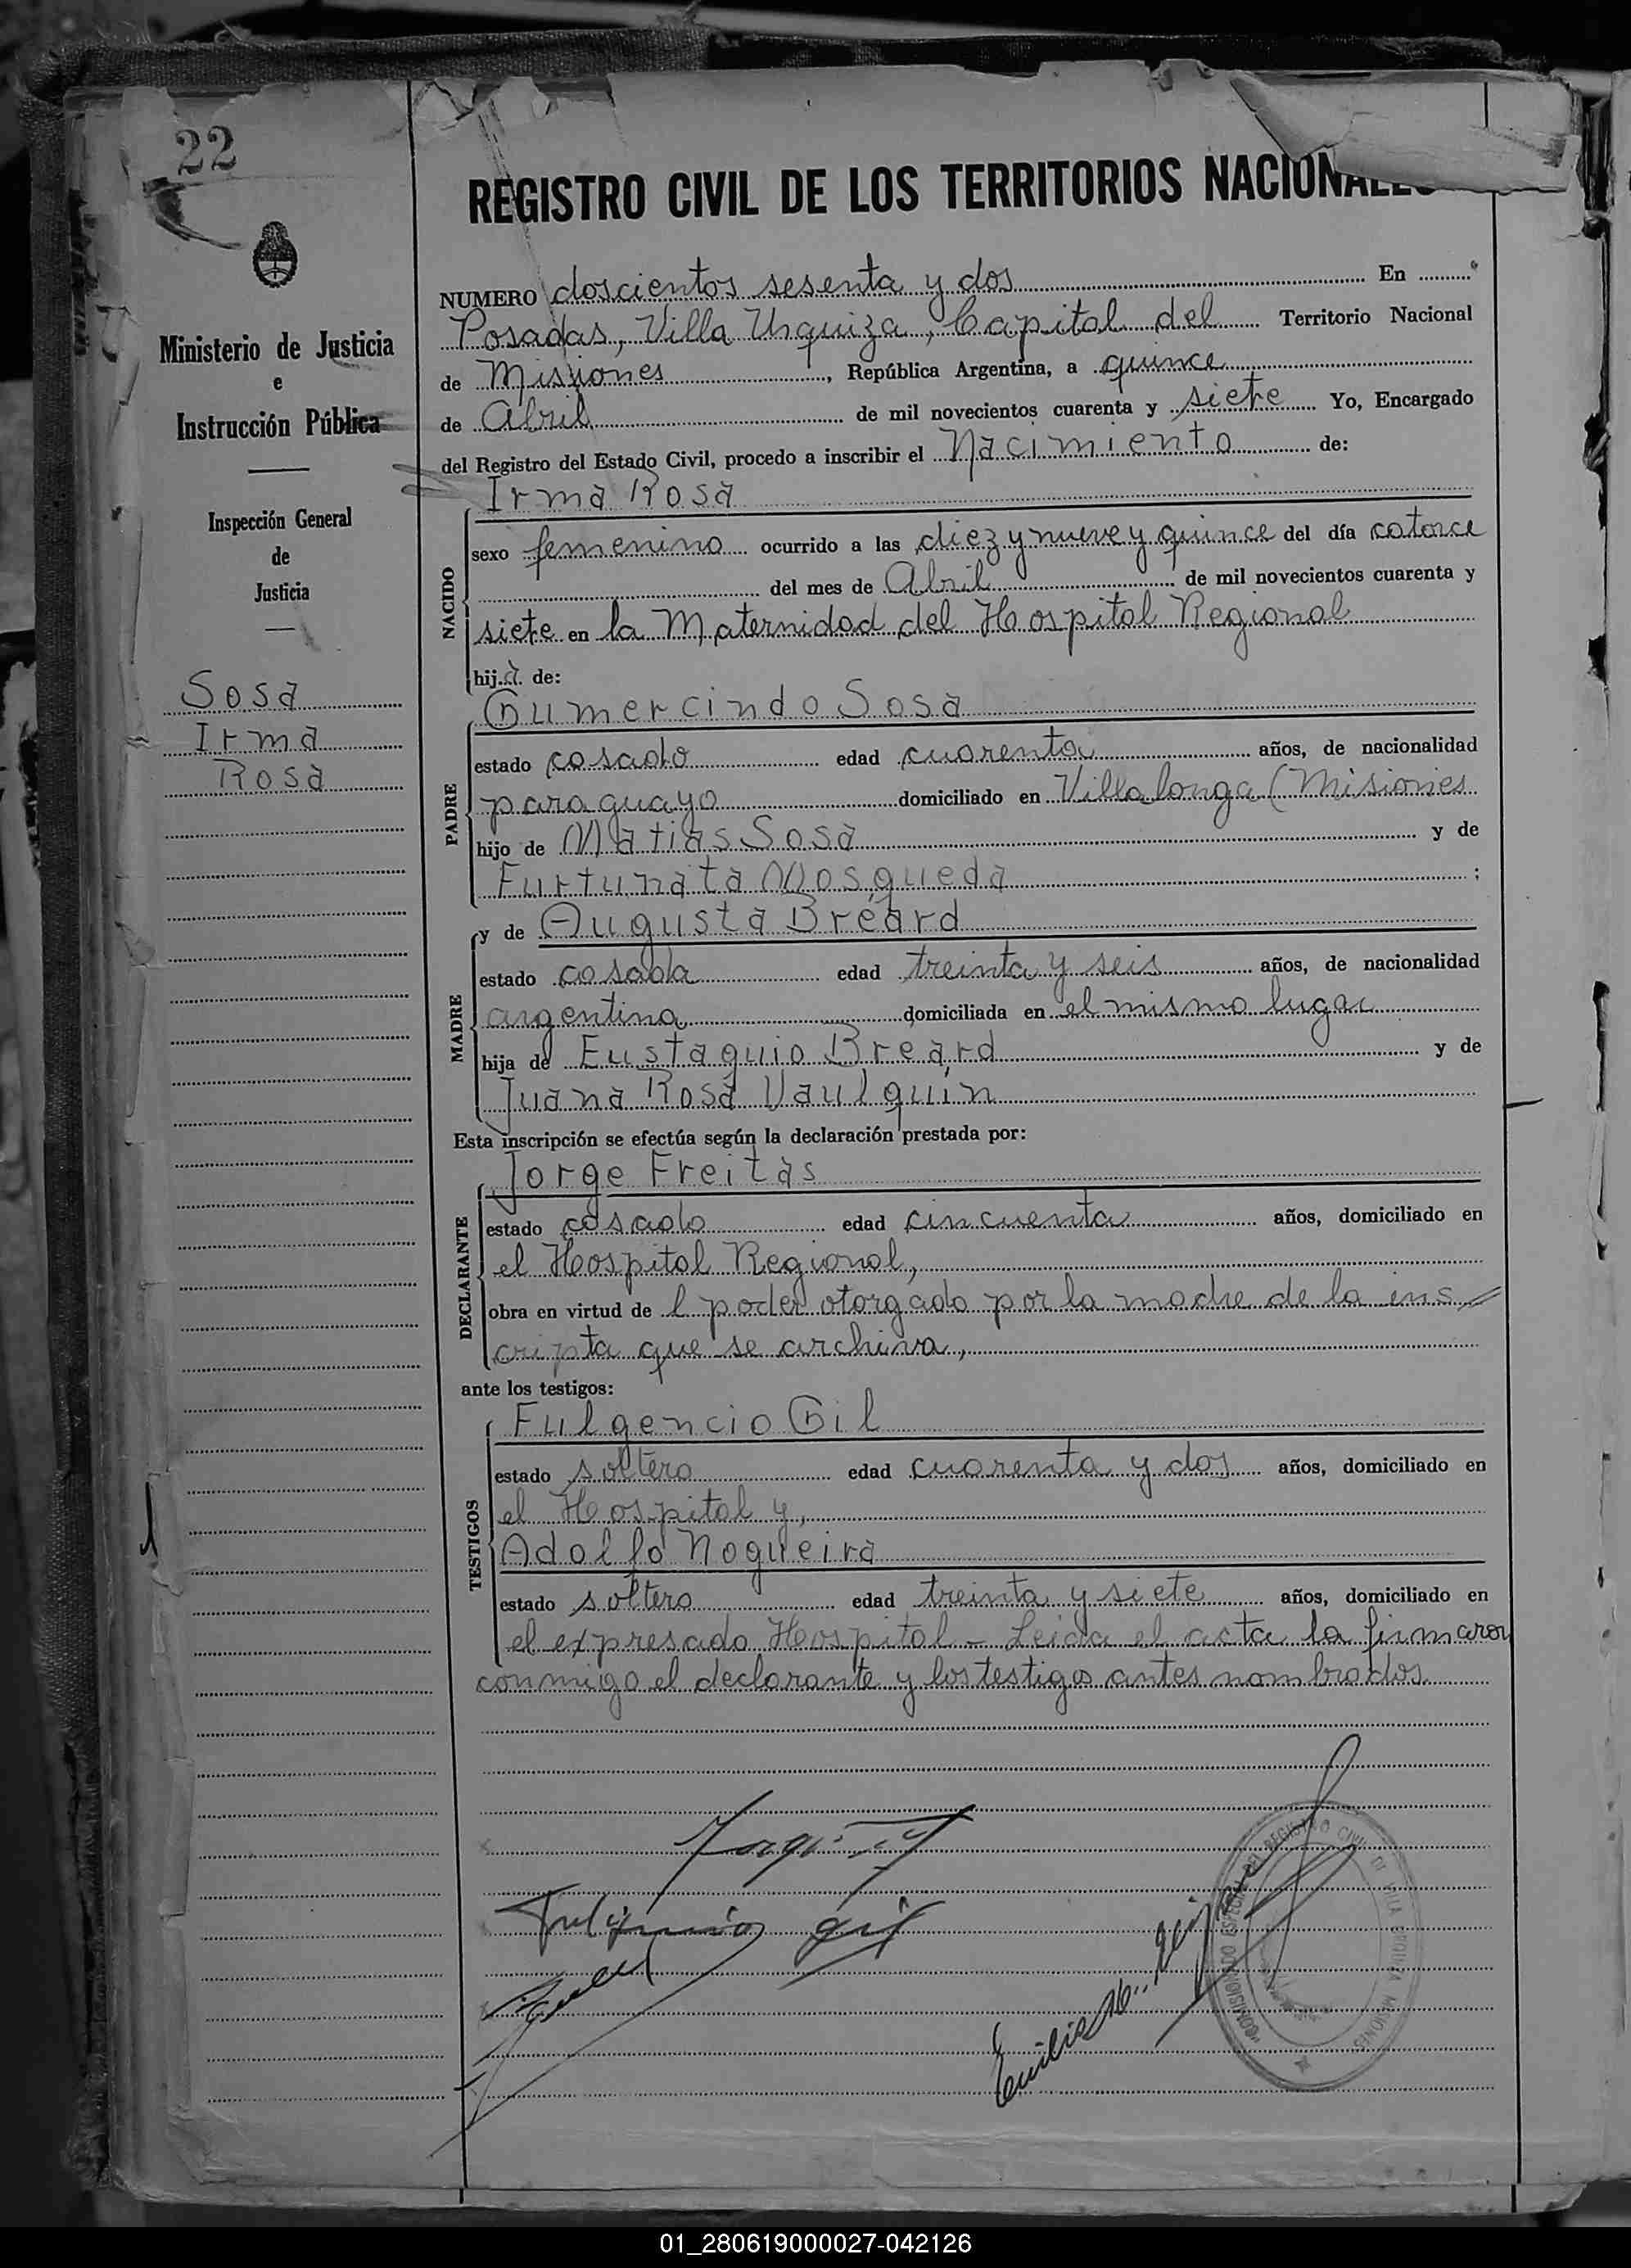 22
REGISTRO CIVIL DE LOS TERRITORIOS NACIONALES
Ministerio de Justicia
e
Instrucción Pública
Inspección General
de
Justicia
Sosa
Irma
Rosa
NUMERO doscientos sesenta y dos En
Posadas, Villa Urquiza, Capital del Territorio Nacional
de Misiones, República Argentina, a quince
de Abril de mil novecientos cuarenta y siete Yo, Encargado
del Registro del Estado Civil, procedo a inscribir el Nacimiento de:
Irma Rosa
NACIDO
sexo femenino ocurrido a las diez y nueve y quince del día catorce
del mes de Abril de mil novecientos cuarenta y
siete en la Maternidad del Hospital Regional
hija de:
Gumercindo Sosa
PADRE
estado casado edad cuarenta años, de nacionalidad
paraguayo domiciliado en Villalonga (Misiones
hijo de Matias Sosa y de
Furtunata Mosqueda ;
y de Augusta Bréard
MADRE
estado casada edad treinta y seis años, de nacionalidad
argentina domiciliada en el mismo lugar
hija de Eustaquio Breard y de
Juana Rosa Vaulquin
Esta inscripción se efectúa según la declaración prestada por:
Jorge Freitas
DECLARANTE
estado casado edad cincuenta años, domiciliado en
el Hospital Regional,
obra en virtud de l poder otorgado por la madre de la ins
cripta que se archiva,
ante los testigos:
Fulgencio Gil
TESTIGOS
estado soltero edad cuarenta y dos años, domiciliado en
el Hospital y,
Adolfo Nogueira
estado soltero edad treinta y siete años, domiciliado en
el expresado Hospital - Leida el acta la firmaron
conmigo el declarante y los testigos antes nombrados
Fulgencio gil
Emilio
COMISIONADO ESPECIAL DEL REGISTRO CIVIL DE VILLA URQUIZA MISIONES
01_280619000027-042126